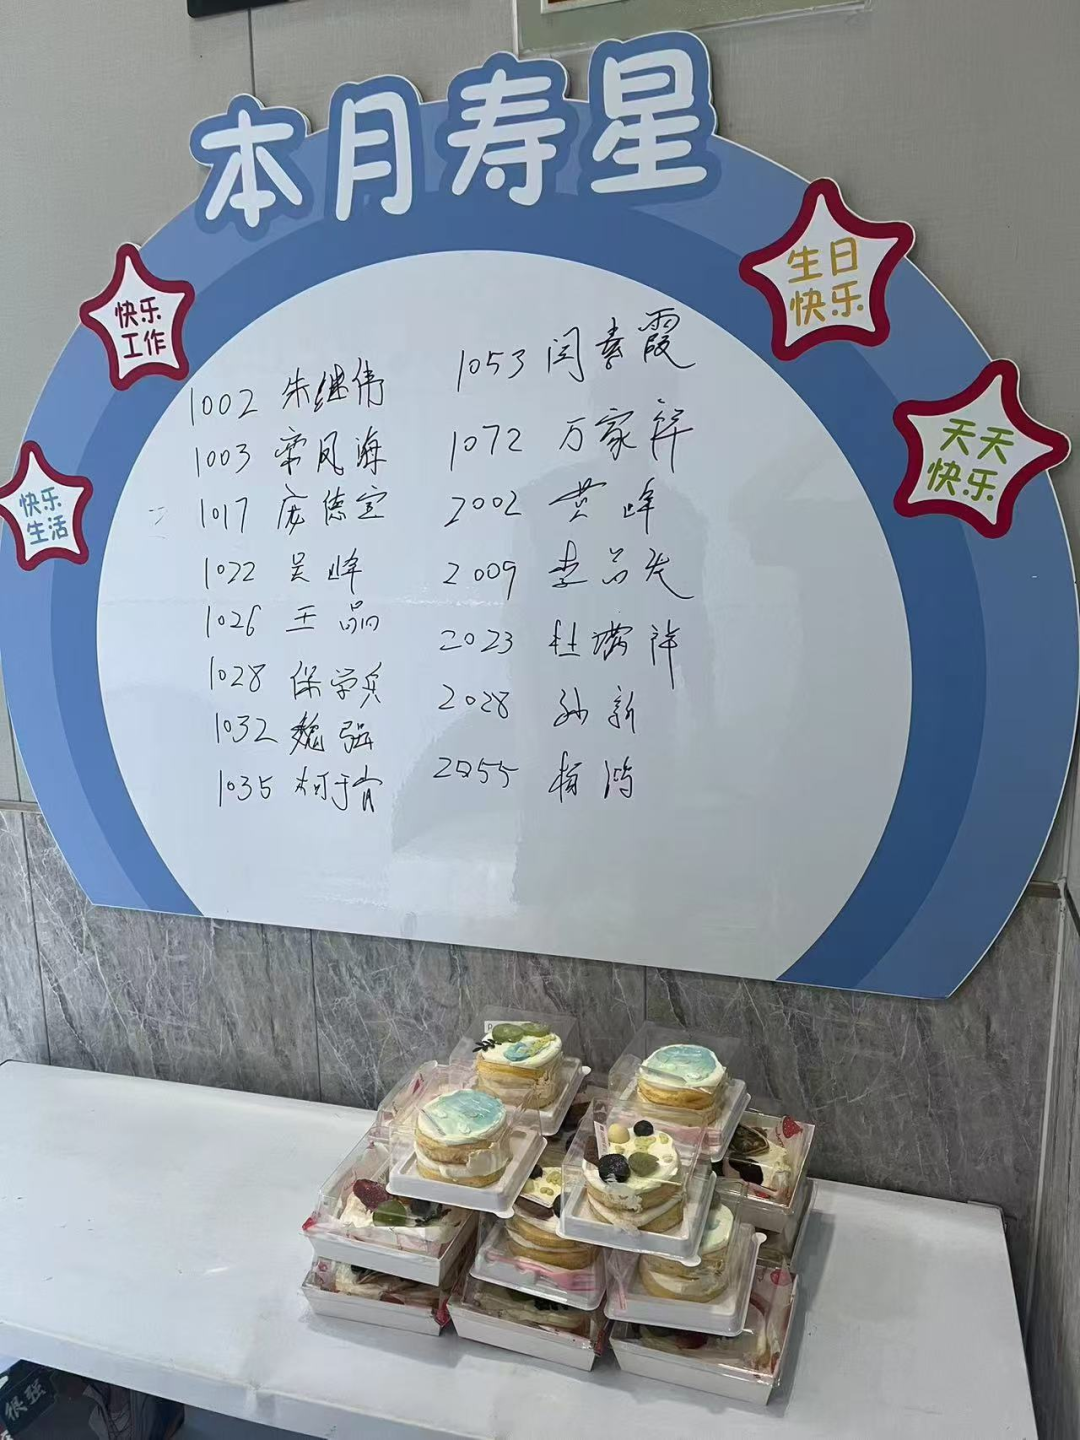 本月寿星
快乐
工作
生日
快乐
快乐
生活
天天
快乐
1002 朱继伟
1003 常凤海
1017 庞德宝
1022 吴峰
1026 王晶
1028 保学兵
1032 魏强
1035 柯于肯
1053 闫素霞
1072 万家祥
2002 黄峰
2009 李
2023 杜满祥
2028 孙新
2055 杨鸿
很强